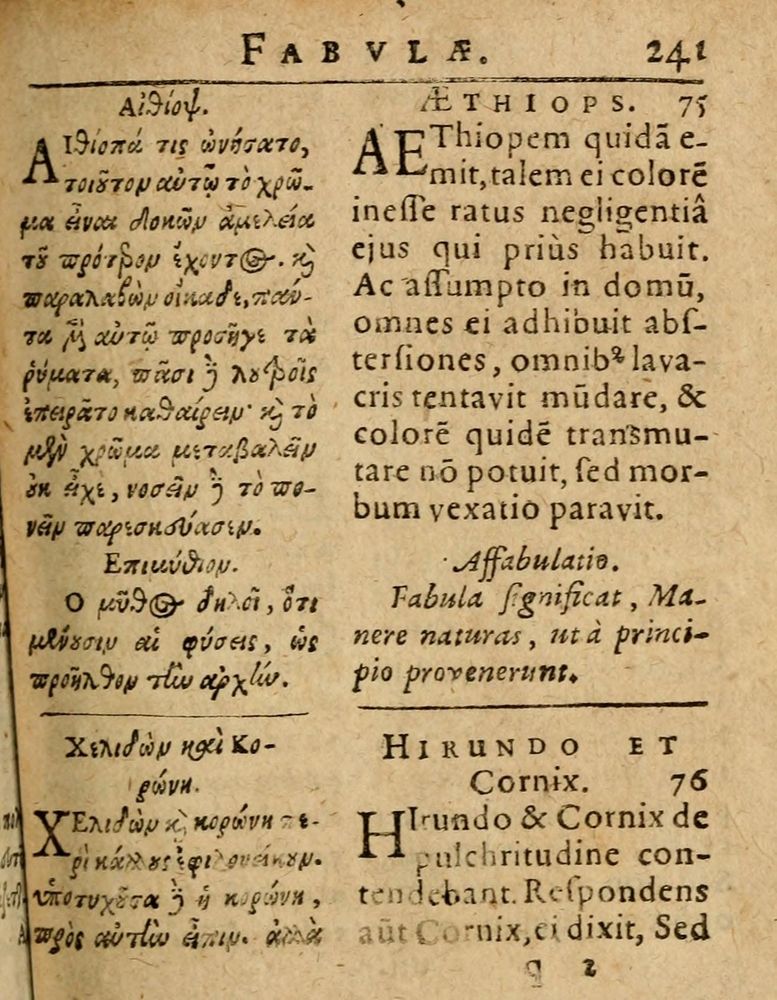 FABVLÆ. 241
Αἰθίοψ.
ΑΙθίοπά τις ὠνήσατο,
τοιοῦτον αὐτῷ τὸ χρῶ-
μα εἶναι δοκῶν ἀμελείᾳ
τοῦ πρότερον ἔχοντος. καὶ
παραλαβὼν οἴκαδε, πάν-
τα μὲν αὐτῷ προσῆγε τὰ
ῥύματα, πᾶσι δὲ λουτροῖς
ἐπειρᾶτο καθαίρειν· καὶ τὸ
μὲν χρῶμα μεταβαλεῖν
οὐκ εἶχε, νοσεῖν δὲ τὸ πο-
νεῖν παρεσκεύασεν.
Επιμύθιον.
Ο μῦθος δηλοῖ, ὅτι
μένουσιν αἱ φύσεις, ὡς
προῆλθον τὴν ἀρχήν.
Χελιδὼν καὶ Κο-
ρώνη.
ΧΕλιδὼν καὶ κορώνη πε-
ρὶ κάλλους ἐφιλονείκουν.
ὑποτυχοῦσα δὲ ἡ κορώνη,
πρὸς αὐτὴν εἶπεν. ἀλλὰ
ÆTHIOPS. 75
AEThiopem quidã e-
mit, talem ei colorẽ
ineſſe ratus negligentiâ
ejus qui priùs habuit.
Ac aſſumpto in domũ,
omnes ei adhibuit abſ-
terſiones, omnibꝰ lava-
cris tentavit mũdare, &
colorẽ quidẽ transmu-
tare nõ potuit, ſed mor-
bum vexatio paravit.
Affabulatio.
Fabula ſignificat, Ma-
nere naturas, ut à princi-
pio provenerunt.
HIRUNDO ET
Cornix. 76
HIrundo & Cornix de
pulchritudine con-
tendebant. Reſpondens
aũt Cornix, ei dixit, Sed
q 2